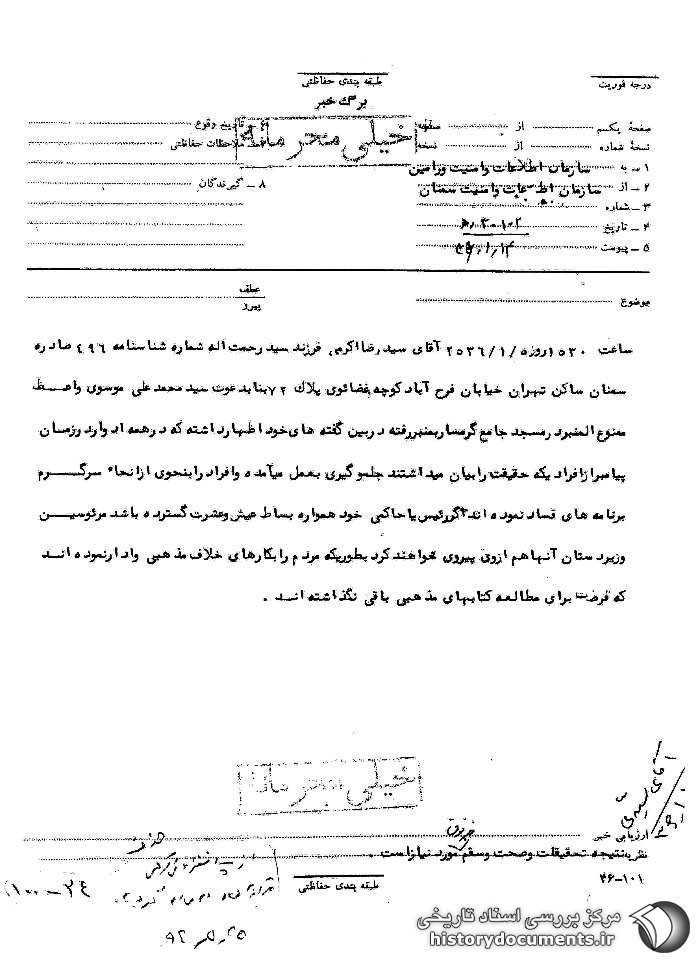 درجه فوریت
طبقه بندی حفاظتی
برگ خبر
خیلی محرمانه
صفحهٔ یکم از صفحه
نسخهٔ شماره از نسخه
۱ ـ به سازمان اطلاعات وامنیت ورامین
۲ ـ از سازمان اطلاعات وامنیت سمنان
۳ ـ شماره
۴ ـ تاریخ
۵ ـ پیوست
تاریخ وقوع
ملاحظات حفاظتی
۸ ـ گیرندگان
موضوع
عطف
پیرو
ساعت ۱۵۳۰ روز ۵/۱/۲۵۳۶ آقای سید رضا اکرمی فرزند سید رحمت اله شماره شناسنامه ۴۹۶ صادره
سمنان ساکن تهران خیابان فرح آباد کوچه پلاک ۷۲ بنا بدعوت سید محمد علی موسوی واعظ
ممنوع المنبر در مسجد جامع گرمسار بمنبر رفته در بین گفته های خود اظهار داشته که در همه ادوار در زمان
پیامبر از افرادیکه حقیقت را بیان میداشتند جلوگیری بعمل میآمده وافراد را بنحوی از انحاء سرگرم
برنامه های فساد نموده اند اگر رئیس یا حاکمی خود همواره بساط عیش وعشرت گسترده باشد مرئوسین
وزیردستان آنها هم از وی پیروی خواهند کرد بطوریکه مردم را بکارهای خلاف مذهبی وادار نموده اند
که فرصت برای مطالعه کتابهای مذهبی باقی نگذاشته اند .
خیلی محرمانه
ارزیابی خبر
نظریه نتیجه تحقیقات وصحت وسقم مورد نیاز است .
طبقه بندی حفاظتی
۴۶-۱۰۱
مرکز بررسی اسناد تاریخی
historydocuments.ir